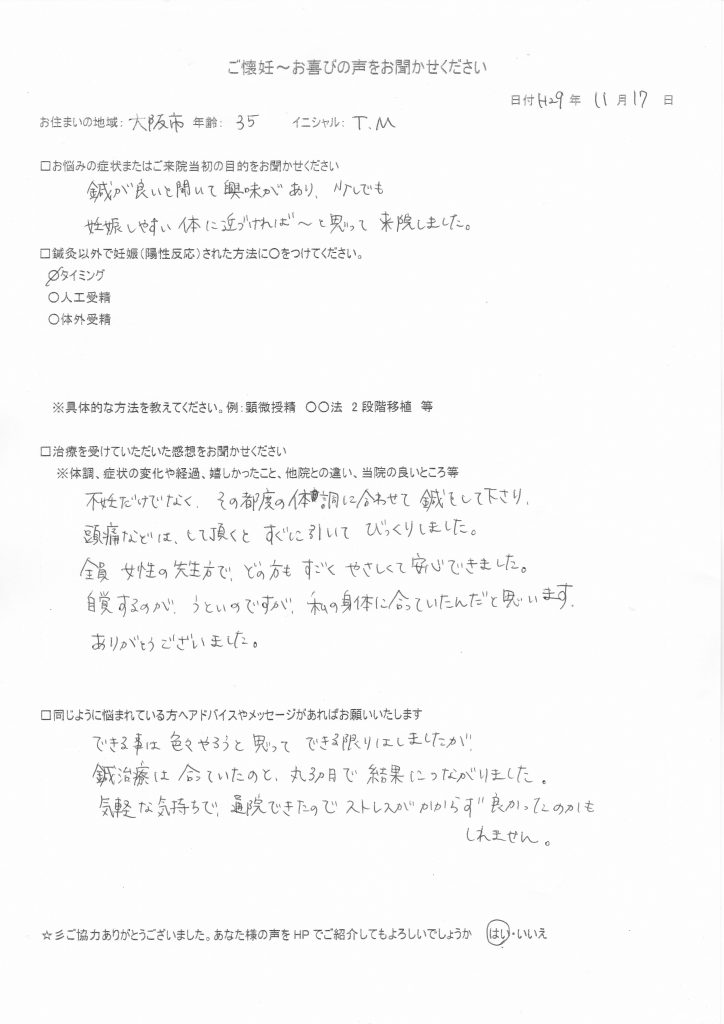 ご懐妊～お喜びの声をお聞かせください
日付 H29 年 11 月 17 日
お住まいの地域： 大阪市 年齢： 35 イニシャル： T.M
□お悩みの症状またはご来院当初の目的をお聞かせください
鍼が良いと聞いて興味があり、少しでも
妊娠しやすい体に近づければ～と思って来院しました。
□鍼灸以外で妊娠（陽性反応）された方法に○をつけてください。
○タイミング
○人工受精
○体外受精
※具体的な方法を教えてください。例：顕微授精 ○○法 2段階移植 等
□治療を受けていただいた感想をお聞かせください
※体調、症状の変化や経過、嬉しかったこと、他院との違い、当院の良いところ等
不妊だけでなく、その都度の体調に合わせて鍼をして下さり、
頭痛などは、して頂くとすぐに引いてびっくりしました。
全員女性の先生方で、どの方もすごくやさしくて安心できました。
自覚するのが、うといのですが、私の身体に合っていたんだと思います。
ありがとうございました。
□同じように悩まれている方へアドバイスやメッセージがあればお願いいたします
できる事は色々やろうと思ってできる限りはしましたが、
鍼治療は合っていたのと、丸3ヵ月で結果につながりました。
気軽な気持ちで、通院できたのでストレスがかからず良かったのかも
しれません。
☆彡ご協力ありがとうございました。あなた様の声をHPでご紹介してもよろしいでしょうか はい・いいえ